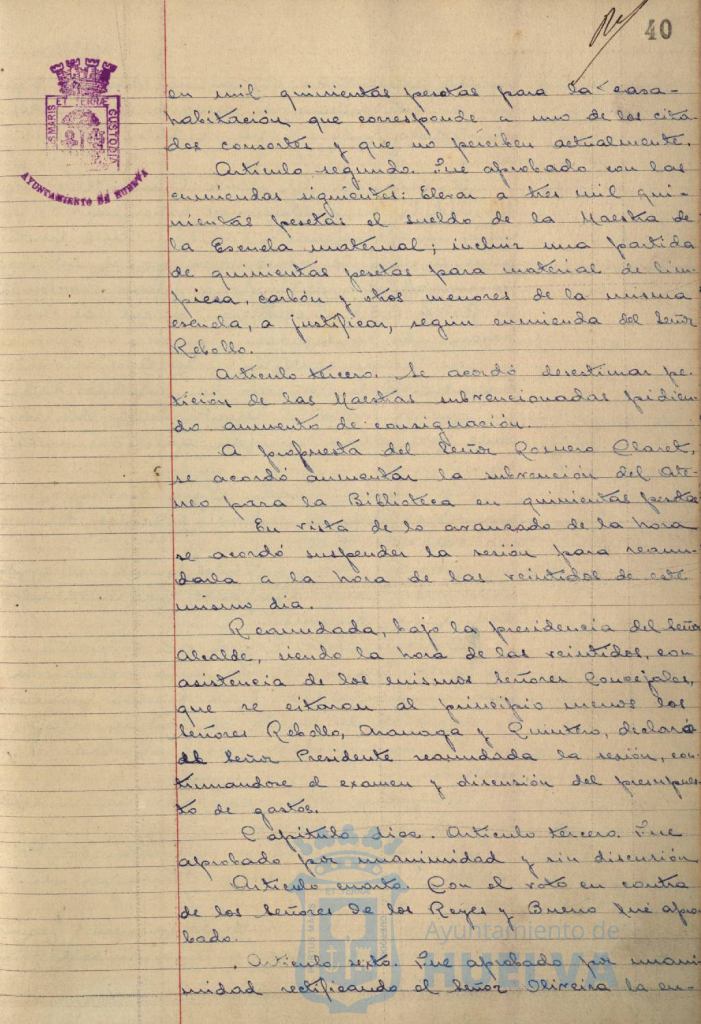 40
PORTUS MARIS ET TERRÆ CUSTODIA
AYUNTAMIENTO DE HUELVA
en mil quinientas pesetas para la casa-
habitación que corresponde a uno de los cita-
dos consortes y que no perciben actualmente.
Articulo segundo. Fue aprobado con las
enmiendas siguientes: Elevar a tres mil qui-
nientas pesetas el sueldo de la Maestra de
la Escuela maternal; incluir una partida
de quinientas pesetas para material de lim-
pieza, carbón y otros menores de la misma
escuela, a justificar, según enmienda del Señor
Rebollo.
Articulo tercero. Se acordó desestimar pe-
tición de las Maestras subvencionadas pidien-
do aumento de consignación.
A propuesta del Señor Romero Claret,
se acordó aumentar la subvención del Ate-
neo para la Biblioteca en quinientas pesetas
En vista de lo avanzado de la hora
se acordó suspender la sesión para reanu-
darla a la hora de las veintidos de este
mismo dia.
Reanudada, bajo la presidencia del Señor
Alcalde, siendo la hora de las veintidos, con
asistencia de los mismos Señores Concejales,
que se citaron al principio menos los
Señores Rebollo, Aranaga y Quintero, declaró
el Señor Presidente reanudada la sesión, con-
tinuandose el examen y discusión del presupues-
to de gastos.
Capitulo diez. Articulo tercero. Fue
aprobado por unanimidad y sin discusión
Articulo cuarto. Con el voto en contra
de los Señores de los Reyes y Bueno fué apro-
bado.
Articulo sexto. Fue aprobado por unani-
midad rectificando el Señor Oliveira la en-
Ayuntamiento de
HUELVA